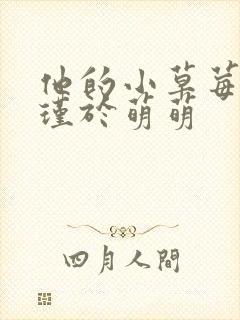 他的小草莓
瑾於萌萌
四月人間